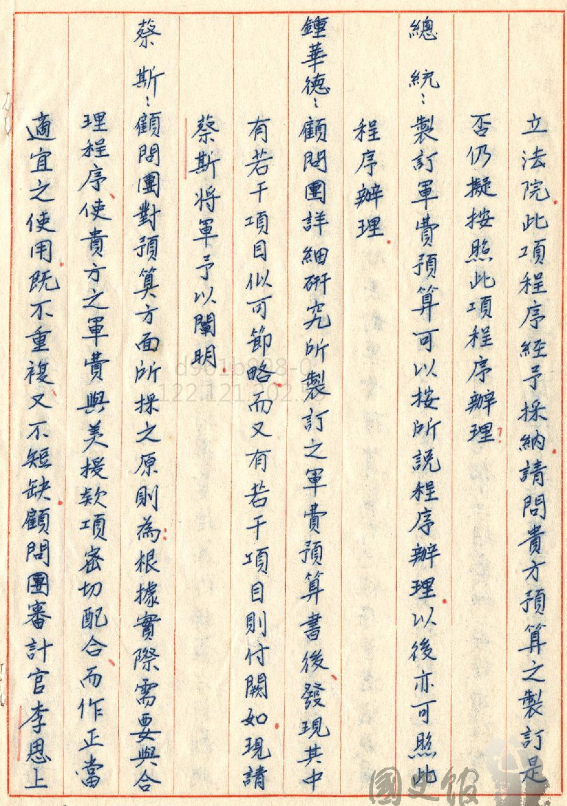 立法院此項程序經予採納請問貴方預算之製訂是
否仍擬按照此項程序辦理
總統：製訂軍費預算可以按所說程序辦理以後亦可照此
程序辦理
鍾華德：顧問團詳細研究所製訂之軍費預算書後發現其中
有若干項目似可節略而又有若干項目則付闕如現請
蔡斯將軍予以闡明
蔡斯：顧問團對預算方面所採之原則為根據實際需要與合
理程序使貴方之軍費與美援款項密切配合而作正當
適宜之使用既不重複又不短缺顧問團審計官李思上
國史館